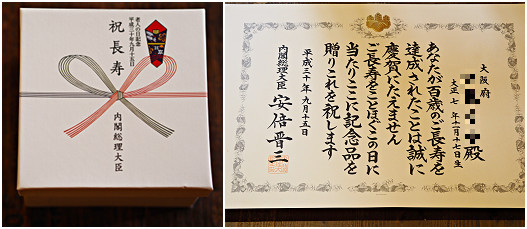 老人の日記念
平成三十年九月十五日
祝長寿
内閣総理大臣
大阪府
殿
大正七年十一月十七日生
あなたが百歳のご長寿を
達成されたことは誠に
慶賀にたえません
ご長寿をことほぐこの日に
当たりここに記念品を
贈りこれを祝します
平成三十年九月十五日
内閣総理大臣 安倍晋三